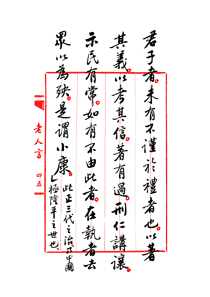 君子者未有不謹於禮者也以著
其義以考其信著有過刑仁講讓
示民有常如有不由此者在執者去
眾以為殃是謂小康
此正三代之治中國
極隆平之世也
老人言 四五